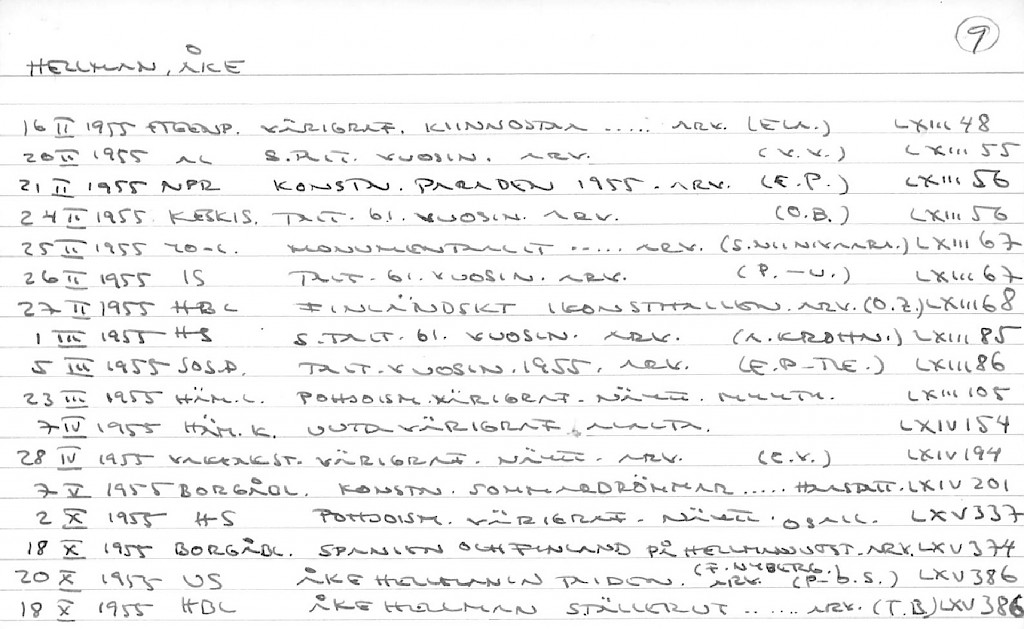 9
HELLMAN, ÅKE
16 II 1955 ETEENP. VÄRIGRAF. KIINNOSTAA ..... ARV. (E.LA.) LXIII 48
20 II 1955 AL S.TAIT. VUOSIN. ARV. (V.V.) LXIII 55
21 II 1955 NPR KONSTN. PARADEN 1955. ARV. (E.P.) LXIII 56
24 II 1955 KESKIS. TAIT. 61. VUOSIN. ARV. (O.B.) LXIII 56
25 II 1955 MONUMENTALIT ..... ARV. (S.NIINIVAARA.) LXIII 67
26 II 1955 IS TAIT. 61. VUOSIN. ARV. (P.-U.) LXIII 67
27 II 1955 HBL FINLÄNDSKT I KONSTHALLEN. ARV. (O.Z.) LXIII 68
1 III 1955 HS S.TAIT. 61. VUOSIN. ARV. (A.KROHN.) LXIII 85
5 III 1955 SOS.D. TAIT. VUOSIN. 1955. ARV. (E.P-TLE.) LXIII 86
23 III 1955 HÄM.S. POHJOISM. VÄRIGRAF. NÄYTT. LXIII 105
7 IV 1955 HÄM.K. UUTA VÄRIGRAF. ALALTA. LXIV 154
28 IV 1955 VÄRIGRAF. NÄYTT. ARV. (E.V.) LXIV 194
7 V 1955 BORGÅBL. KONSTN. SOMMARDRÖMMAR ..... LXIV 201
2 X 1955 HS POHJOISM. VÄRIGRAF. NÄYTT. OSALL. LXV 337
18 X 1955 BORGÅBL. SPANIEN OCH FINLAND PÅ HELLMANUTST. ARV. LXV 374
(F.NYBERG.)
20 X 1955 US ÅKE HELLMANIN TAIDEN. ARV. (P-b.S.) LXV 386
18 X 1955 HBL ÅKE HELLMAN STÄLLER UT ...... ARV. (T.B) LXV 386